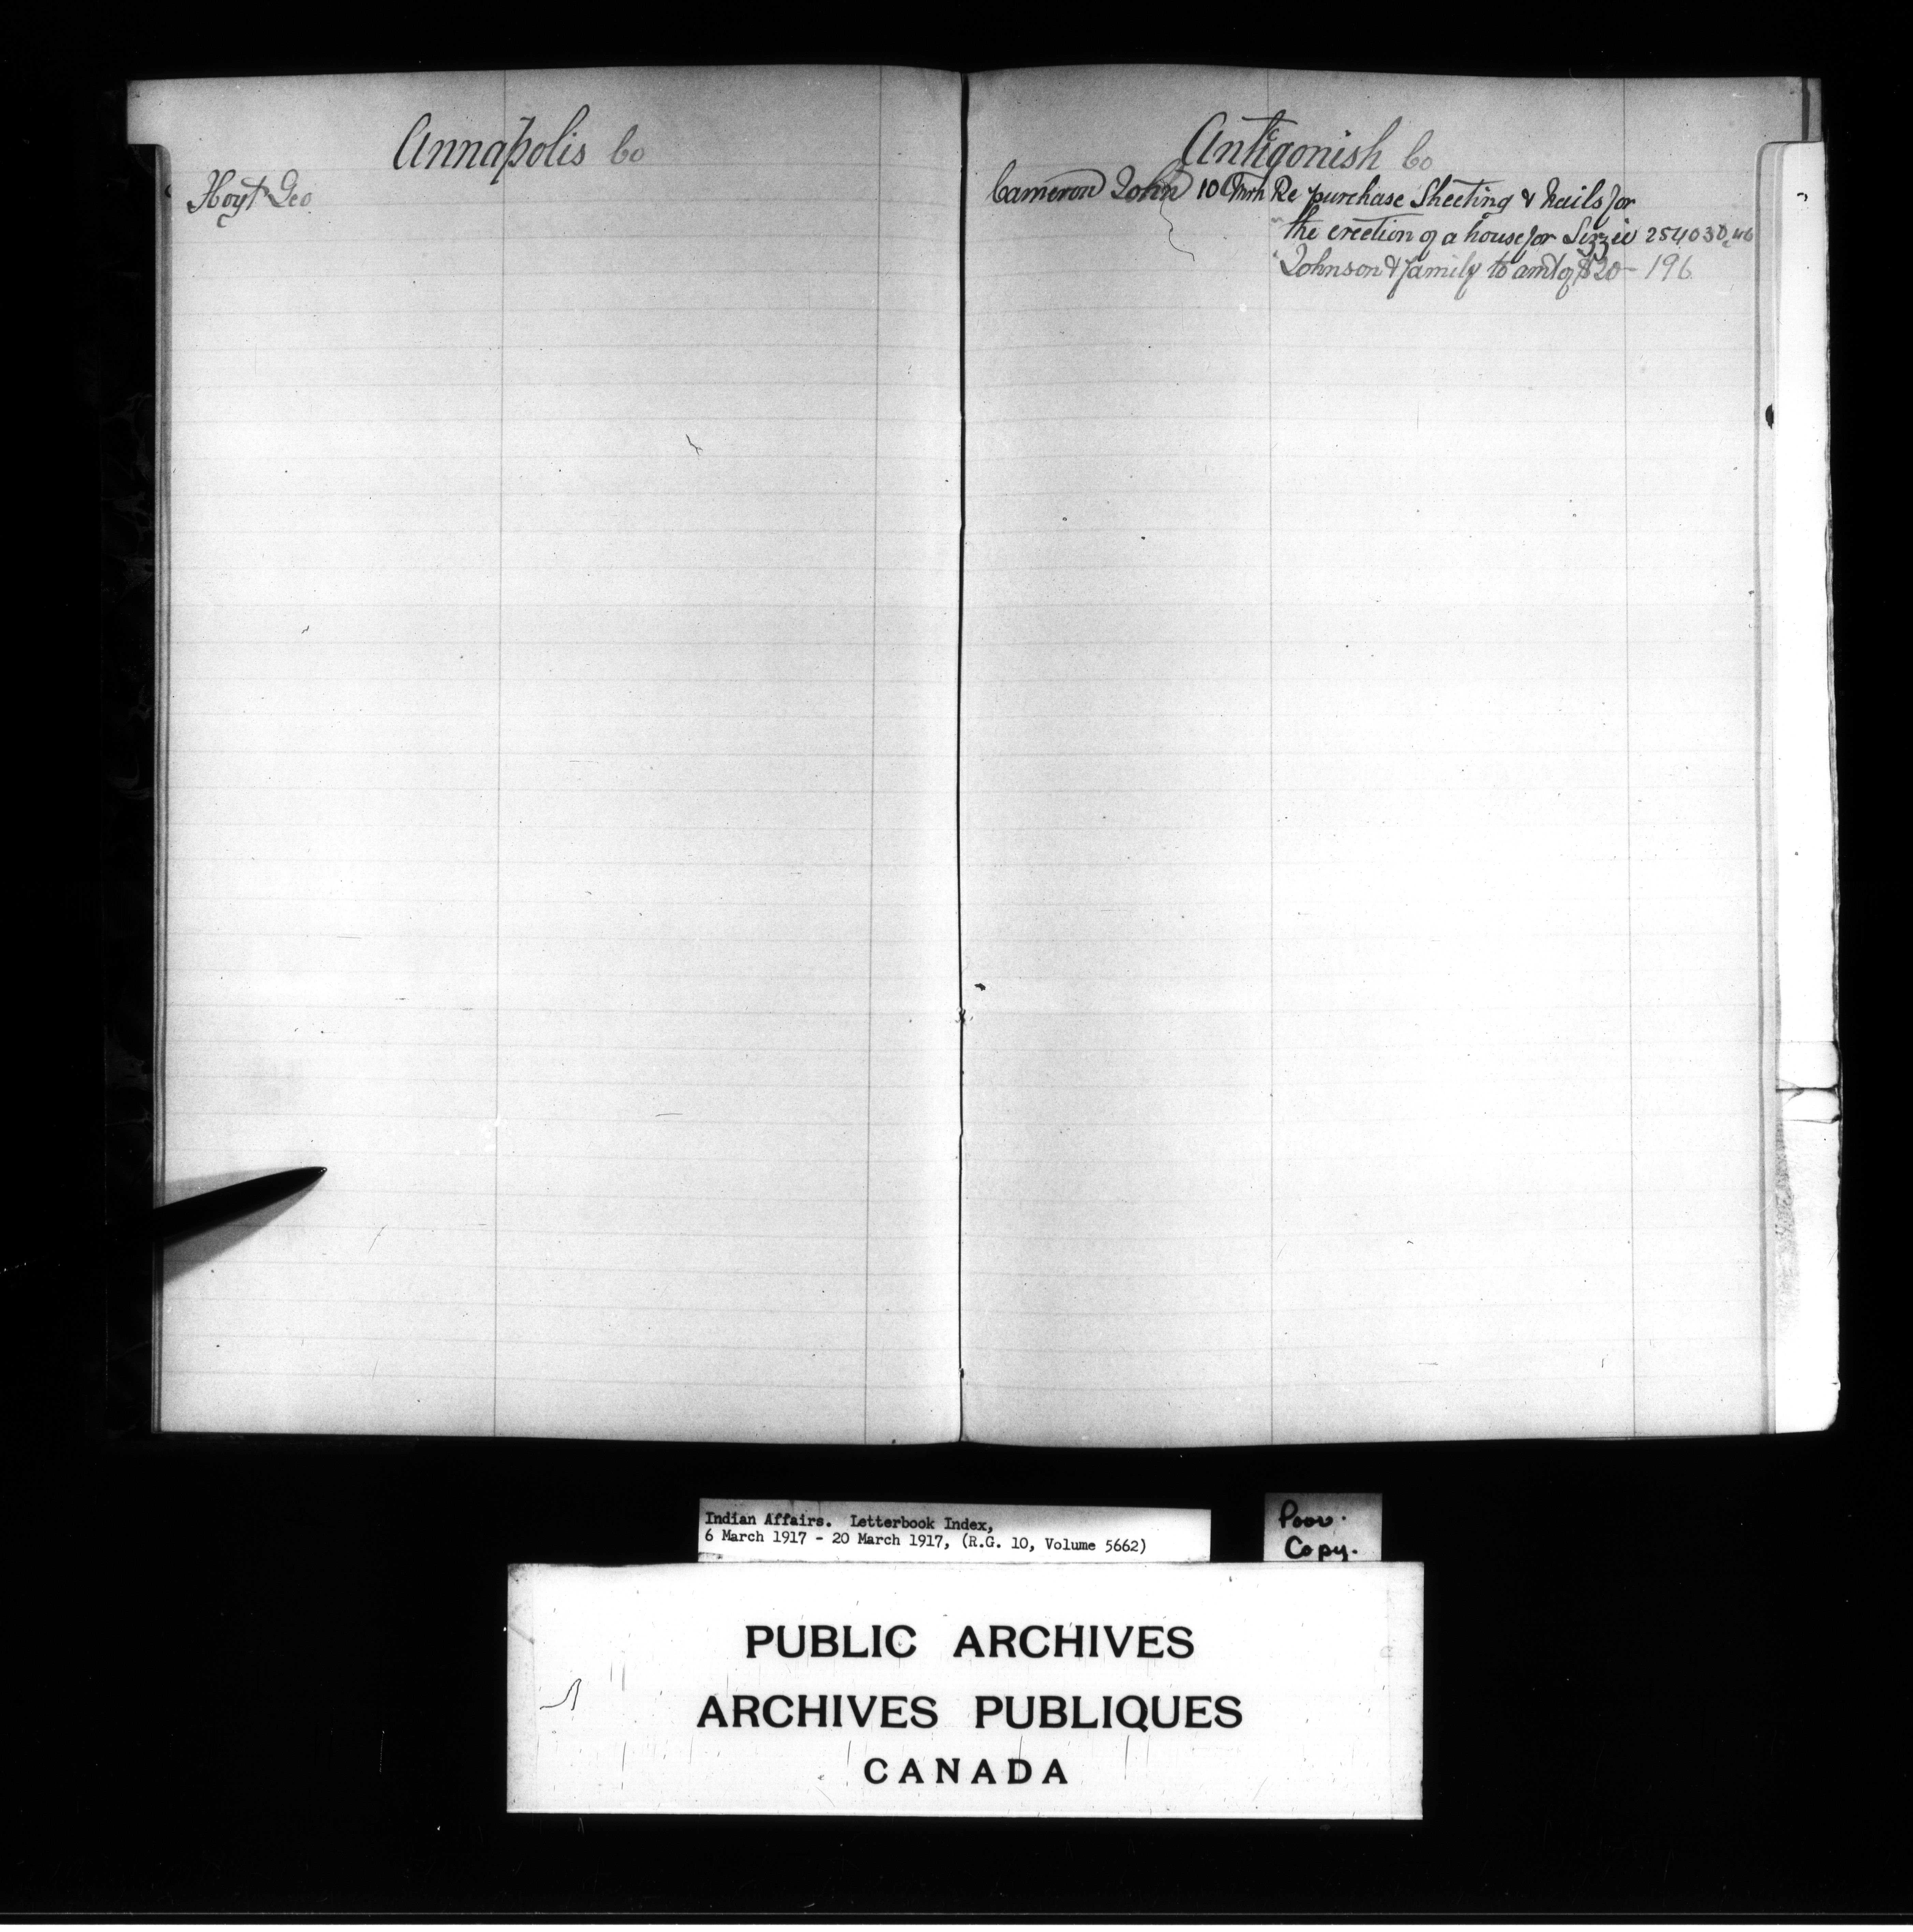 Annapolis Co
Hoyt Geo
Antigonish Co
Cameron John 10 Mrh Re purchase Sheeting & nails for
the erection of a house for Lizzie 254030
Johnson & family to amt of $20 - 196
Indian Affairs. Letterbook Index,
6 March 1917 - 20 March 1917, (R.G. 10, Volume 5662)
Poor.
Copy.
PUBLIC ARCHIVES
ARCHIVES PUBLIQUES
CANADA